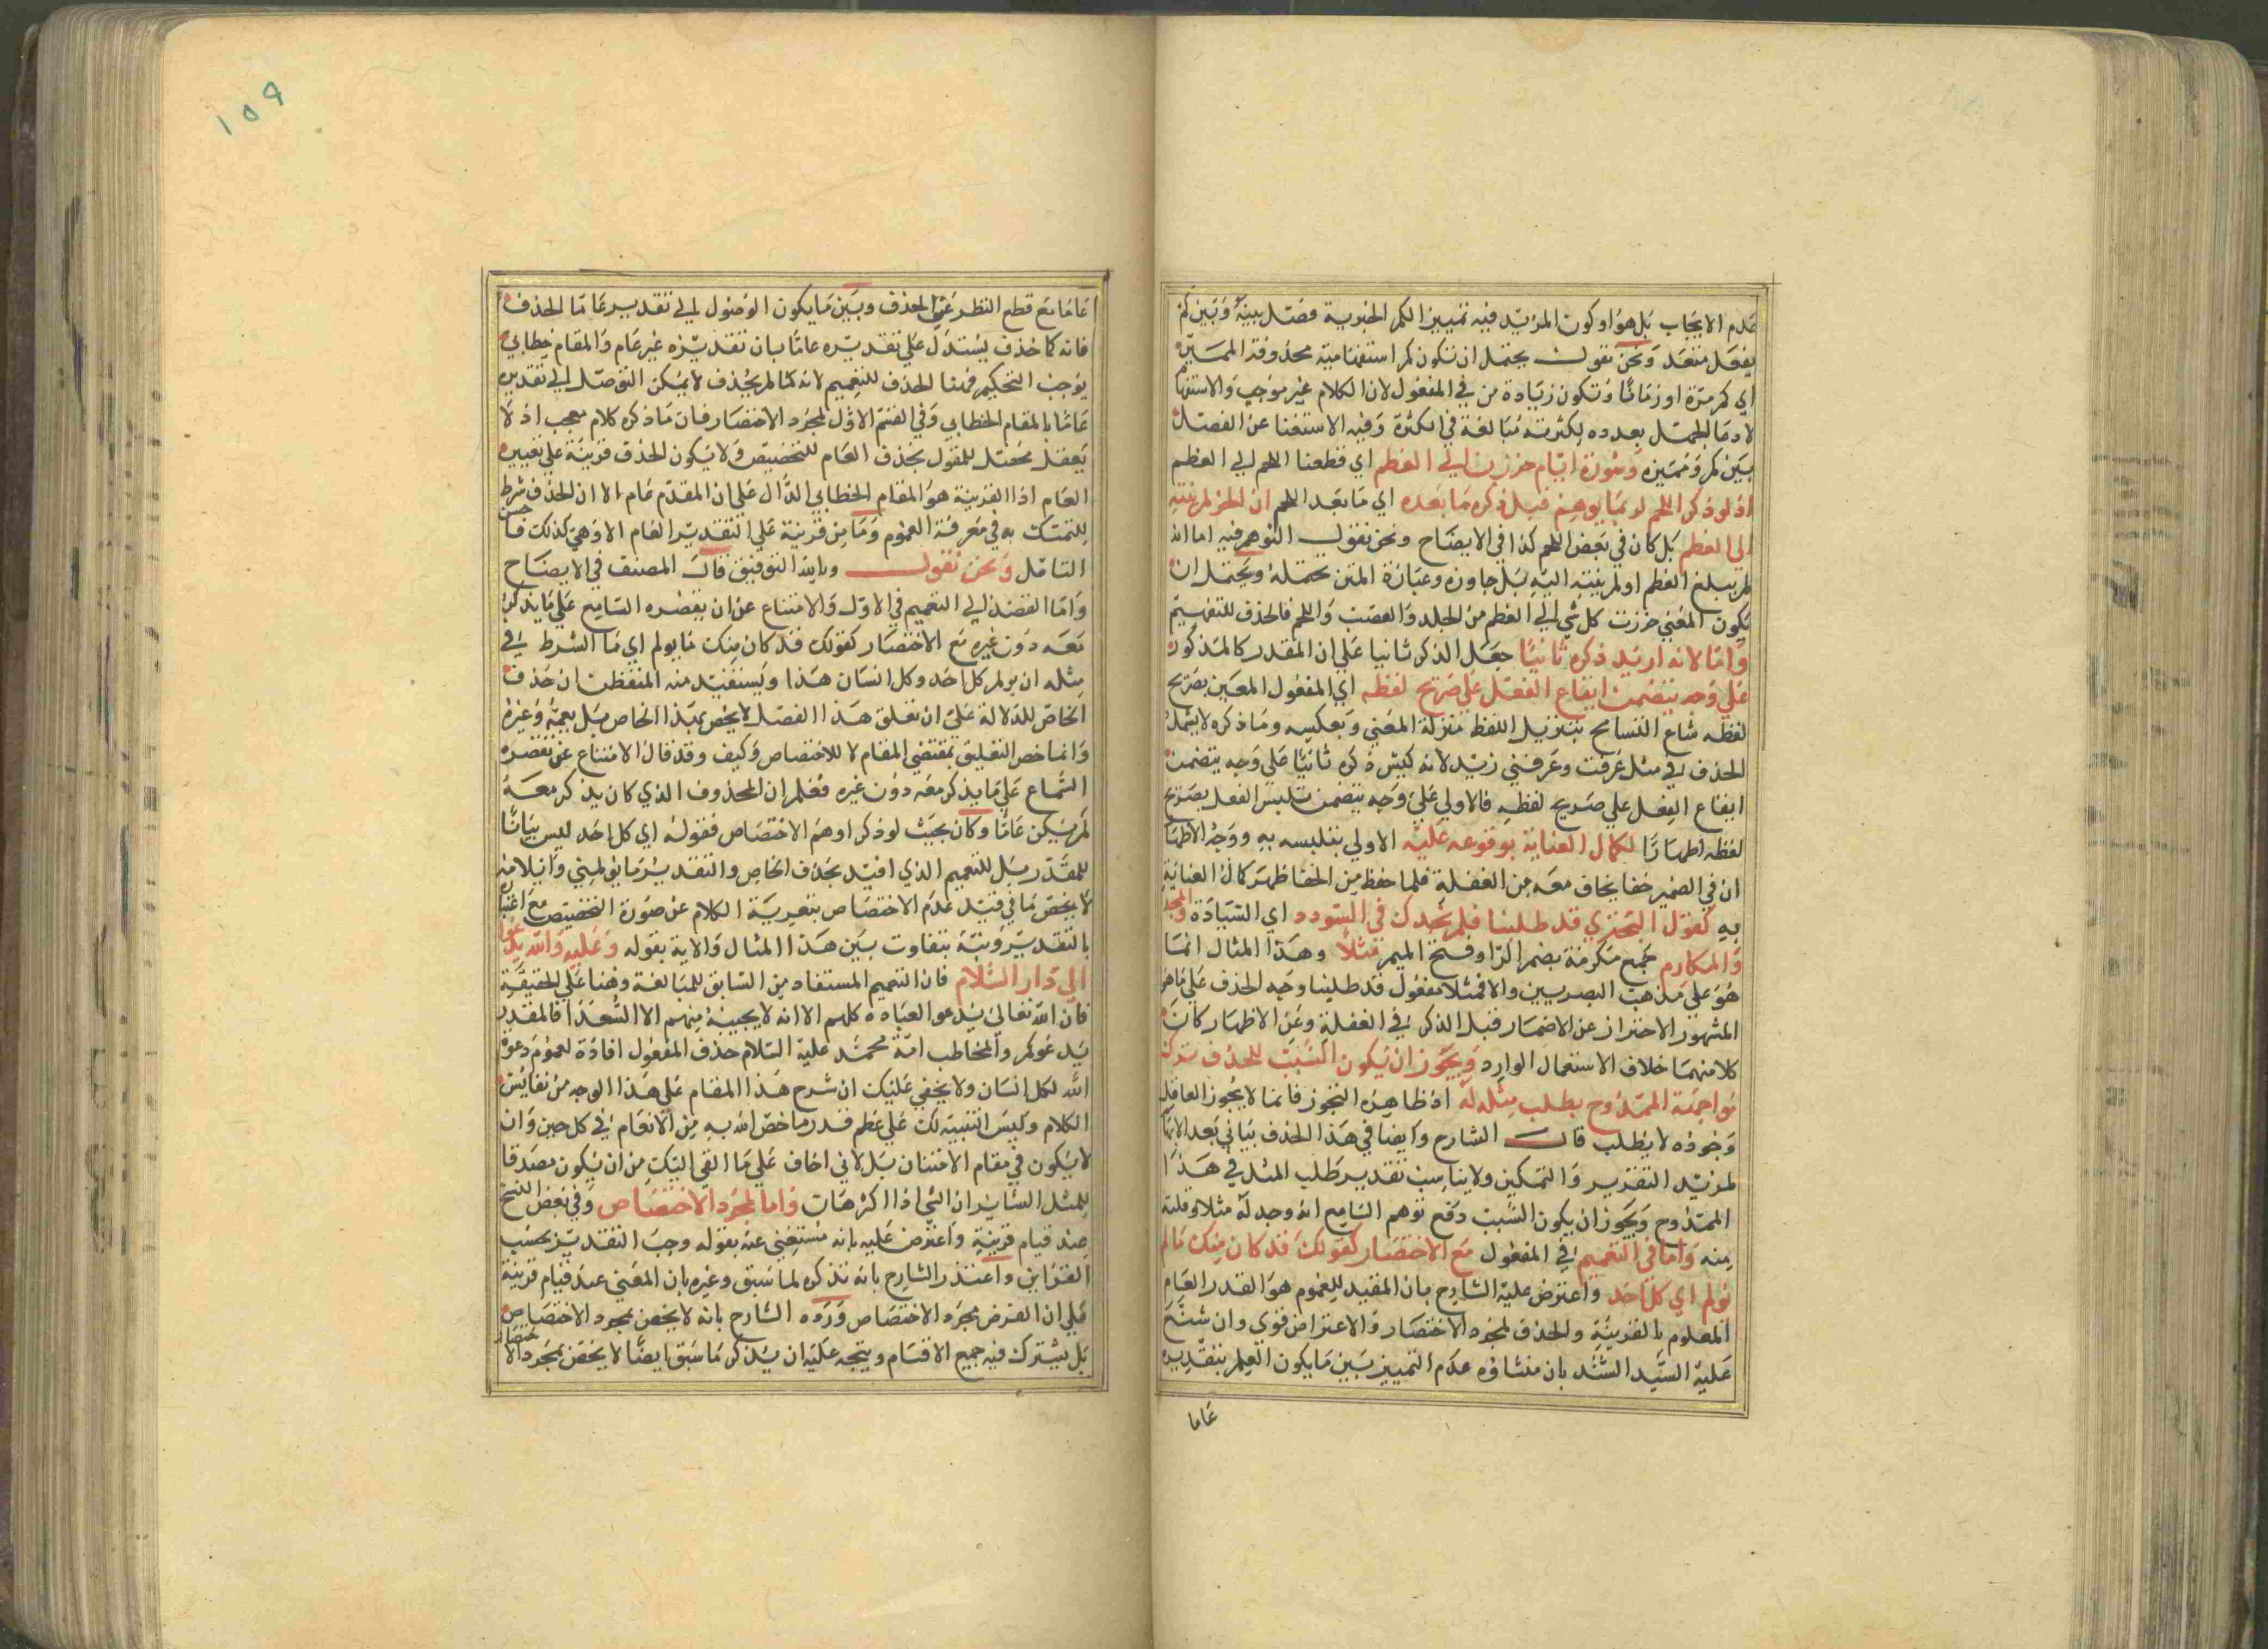 عدم الايجاب بل هو او كون المزيد فيه تمييز الكم الخبرية فصل بينه وبين كم
بفعل متعد ونحن نقول يحتمل ان تكون كم استفهامية محذوفة المميز
اي كم مرة او زمانا وتكون زيادة من في المفعول لان الكلام غير موجب والاستفها
لادعا الجهل بعدده لكثرته مبالغة في الكثرة وفيه الاستغنا عن الفصل
بين كم ومميزه وسورة ايام حززن الى العظم اي قطعنا اللحم الي العظم
اذ لو ذكر اللحم لربما يوهم قبل ذكر ما بعده اي ما بعد اللحم ان الحز لم ينته
الي العظم بل كان في بعض اللحم كذا في الايضاح ونحن نقول التوهم فيه اما انه
لم يبلغ العظم او لم ينته اليه بل جاوزه وعبارة المتن محتملة ويحتمل ان
يكون المعني حززت كل شي الي العظم من الجلد والعصب واللحم فالحذف للتعميم
واما لانه اريد ذكره ثانيا جعل الذكر ثانيا علي ان المقدر كالمذكور
علي وجه يتضمن ايقاع الفعل علي صريح لفظه اي المفعول المعين بصريح
لفظه شاع التسامح بتنزيل اللفظ منزلة المعني وبعكسه وما ذكره لا يشمل
الحذف في مثل عرفت وعرفني زيد لانه ليس ذكره ثانيا علي وجه يتضمن
ايقاع الفعل علي صريح لفظه فالاولي علي وجه يتضمن تلبس الفعل بصريح
لفظه اظهارا لكمال العناية بوقوعه عليه الاولي بتلبسه به ووجه الاظهار
ان في الضمير خفا يخاف معه من الغفلة فلما حفظ من الخفا ظهر كمال العناية
به كقول البحتري قد طلبنا فلم نجد لك في السودد اي السيادة والمجد
والمكارم جمع مكرمة بضم الرا وفتح الميم مثلا وهذا المثال انما
هو علي مذهب البصريين والا فمثلا مفعول قد طلبنا وجه الحذف علي ما هو
المشهور الاحتراز عن الاضمار قبل الذكر في الغفلة وعن الاظهار كان
كلا منهما خلاف الاستعمال الوارد ويجوز ان يكون السبب للحذف ترك
مواجهة الممدوح بطلب مثل له اذ ظاهره التجوز فانما لا يجوز العاقل
وجوده لا يطلب قال الشارح وايضا في هذا الحذف بيان بعد الابها
لمزيد التقرير والتمكين ولا يناسب تقدير طلب المثل في هذا
الممدوح ويجوز ان يكون السبب دفع توهم السامع انه وجد له مثلا وقلته
منه واما في التعميم في المفعول مع الاختصار كقولك قد كان منك ما لم
يولم اي كل احد واعترض عليه الشارح بان المفيد للعموم هو القدر العام
المعلوم بالقرينة والحذف لمجرد الاختصار والاعتراض قوي وان شنع
عليه السيد السند بان منشاؤه عدم التمييز بين ما يكون العلم بتقديره
عاما
١٥٩
عاما مع قطع النظر عن الحذف وبين ما يكون الوصول الي تقديره عاما الحذف
فانه كما حذف يستدل علي تقديره عاما بان تقديره غير عام والمقام خطابي
يوجب التحكيم فهنا الحذف للتعميم لانه كما لم يحذف لا يمكن التوصل الي تقديره
عاما بالمقام الخطابي وفي القسم الاول لمجرد الاختصار فان ما ذكره كلام معجب اذ لا
يعقل محصل للمقول بحذف العام للتخصيص ولا يكون الحذف قرينة علي تعيين
العام اذا القرينة هو المقام الخطابي الدال علي ان المقدم عام الا ان الحذف شرط
للتمسك به في معرفة العموم وما من قرينة علي التقدير العام الا وهي كذلك فاحسن
التامل ونحن نقول وبالله التوفيق قال المصنف في الايضاح
واما القصد الي التعميم في الاول والامتناع عن ان يقصره السامع علي ما يذكر
معه دون غيره مع الاختصار كقولك قد كان منك ما يولم اي ما الشرط في
مثله ان يولم كل احد وكل انسان هذا ويستفيد منه المتفطن ان حذف
الخاص للدلالة علي ان تعلق هذا الفصل لا يخص بهذا الخاص بل يعمه وغيره
وانما خص التعليق بمقتضي المقام لا للاختصاص وكيف وقد قال الامتناع عن تقصره
السماع علي ما يذكر معه دون غيره فعلم ان المحذوف الذي كان يذكر معه
لم يكن عاما وكان بحيث لو ذكر اوهم الاختصاص فقوله اي كل احد ليس بيانا
للمقدر بل للتعميم الذي افيد بحذف الخاص والتقدير ما يولمني وايلامه
لا يخص بما في قيد عدم الاختصاص بتعرية الكلام عن صورة التخصيص مع اعتبا
بالتقدير وبته بتفاوت بين هذا المثال والاية بقوله وعليه والله يدعوا
الي دار السلام فان التعميم المستفاد من السابق للمبالغة وهنا علي الحقيقة
فان الله تعالى يدعو العباد كلهم الا انه لا يجيبه منهم الا السعدا فالمقدر
يدعوكم والمخاطب امة محمد عليه السلام حذف المفعول افادة لعموم دعوة
الله لكل انسان ولا يخفي عليك ان شرح هذا المقام علي هذا الوجه من نفايس
الكلام وليس التنبيه لك علي عظم قدر ما خص الله به من الانعام في كل حين وان
لا يكون في مقام الامتنان بل لاني اخاف علي ما القي اليك من ان يكون مصدقا
للمثل الساير ان الشي اذا اكثر هان واما لمجرد الاختصاص وفي بعض النسخ
عند قيام قرينة واعترض عليه بانه مستغني عنه بقوله وجب التقدير بحسب
القراين واعتذر الشارح بانه تذكره لما سبق وغيره بان المعني عند قيام قرينة
علي ان الغرض مجرد الاختصاص ورده الشارح بانه لا يخص بمجرد الاختصاص
بل يشترك فيه جميع الاقسام ويتجه عليه ان يذكر ما سبق ايضا لا يخص بمجرد الاختصار